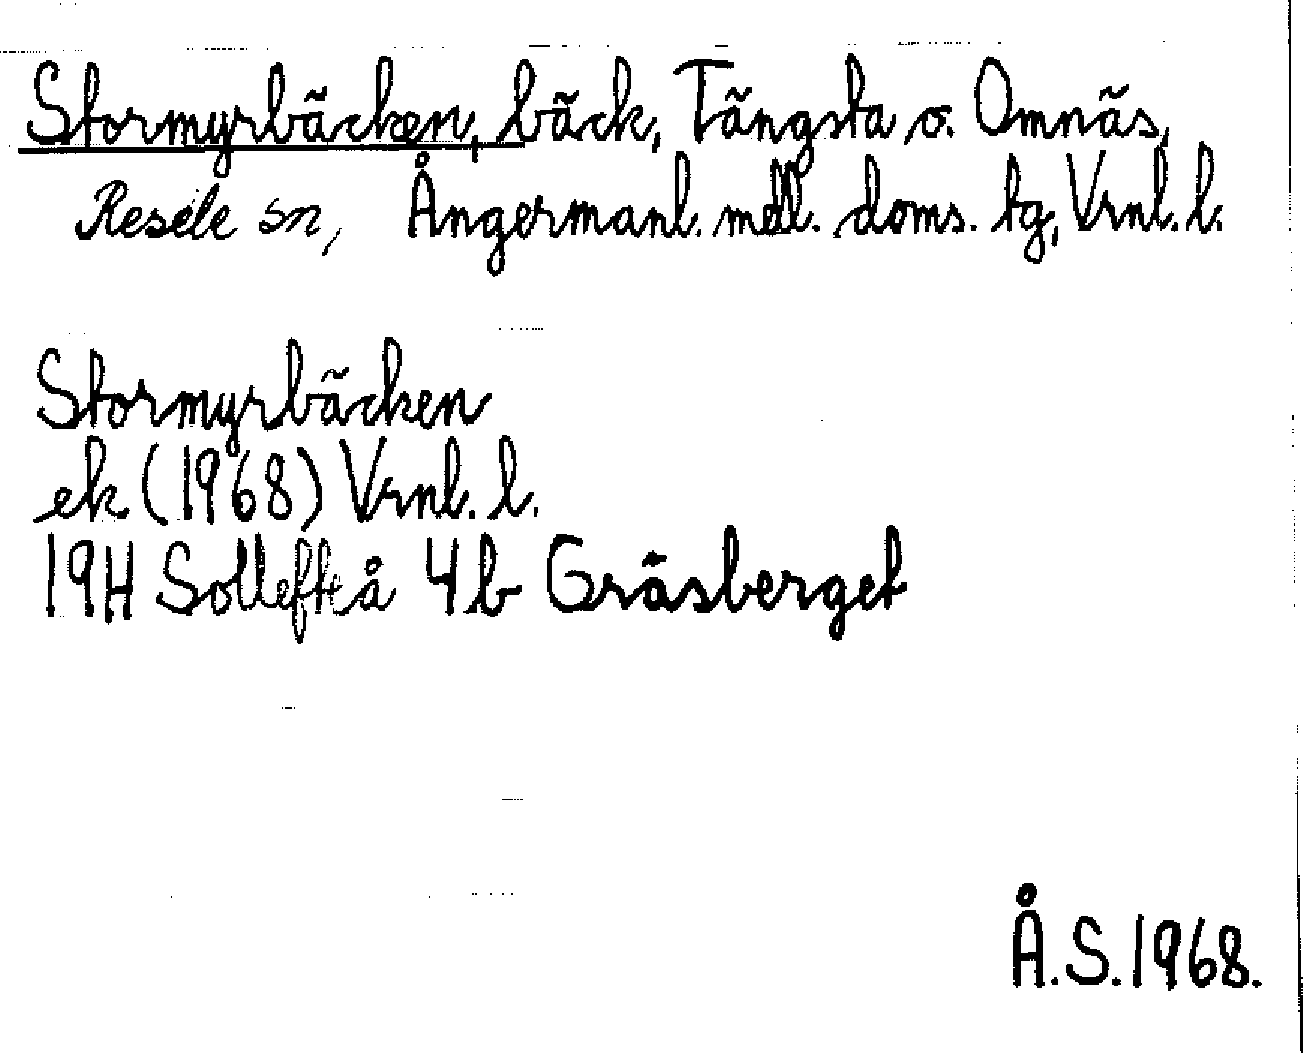 Stormyrbäcken, bäck, Tängsta o. Omnäs,
Resele sn, Ångermanl. mdl. doms. tg, Vrnl. l.
Stormyrbäcken
ek (1968) Vrnl. l.
19H Sollefteå 4b Gråsberget
Å.S. 1968.